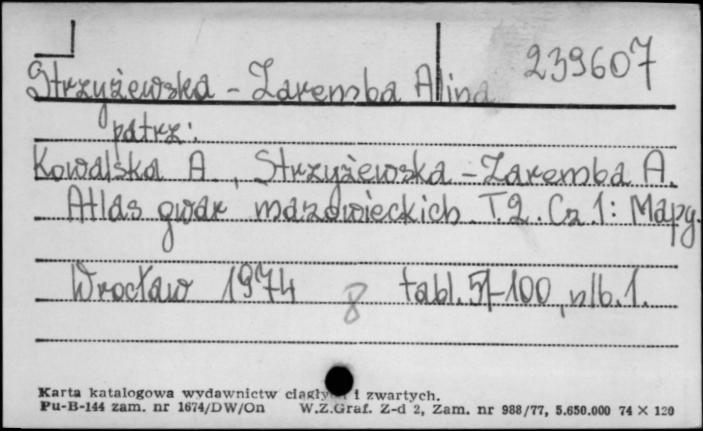 Strzyżewska - Zaremba Alina 239607
patrz:
Kowalska A., Strzyżewska - Zaremba A.
Atlas gwar mazowieckich T.2. Cz.1: Mapy.
Wrocław 1974 8 tabl. 51-100, nlb. 1.
Karta katalogowa wydawnictw ciągłych i zwartych.
Pu-B-144 zam. nr 1674/DW/On W.Z.Graf. Z-d 2, Zam. nr 988/77, 5.650.000 74 × 120